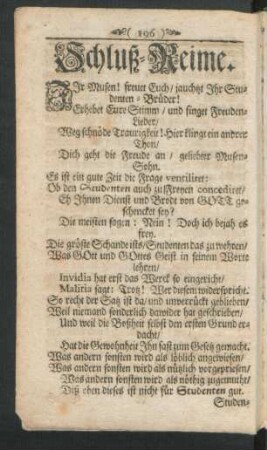 ( 196 )
Schluß-Reime.
Ihr Musen! freuet Euch/ jauchtzt Ihr Stu-
denten-Brüder!
Erhebet Eure Stimm/ und singet Freuden-
Lieder/
Weg schnöde Traurigkeit! Hier klingt ein andrer
Thon/
Dich geht die Freude an/ geliebter Musen-
Sohn.
Es ist ein gute Zeit die Frage ventiliret:
Ob den Studenten auch zu Freyen concediret/
Eh Ihnen Dienst und Brodt von GOTT ge-
schencket sey?
Die meisten sagen: Nein! Doch ich bejah es
frey.
Die gröste Schande ists/ Studenten das zu wehren/
Was GOtt und GOttes Geist in seinem Worte
lehren/
Invidia hat erst das Werck so eingericht/
Malitia sagt: Trotz! Wer diesem widerspricht.
So recht der Satz ist da/ und unverrückt geblieben/
Weil niemand sonderlich dawider hat geschrieben/
Und weil die Boßheit selbst den ersten Grund er-
dacht/
Hat die Gewohnheit Ihn fast zum Gesetz gemacht.
Was andern sonsten wird als löblich angewiesen/
Was andern sonsten wird als nützlich vorgepriesen/
Was andern sonsten wird als nöthig zugemuht/
Diß eben dieses ist nicht für Studenten gut.
Studen-